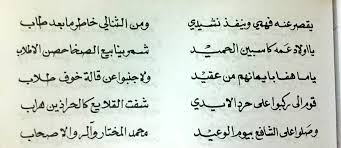 يقصر عنه فهمي وينفذ نشيدي ومن التنالي خاطر ما بعد طاب
يا اولاد عمه كاسبين الحميد شمر ينابيع الصخا حصن الاطلاب
ياما هفا بايمانهم من عقيد ولا جنبوا عن قالة خوف طلاب
قوم الى ركبوا على حرد الايدي شفت القلايع كالحراذين هراب
وصلوا على الشافع بيوم الوعيد محمد المختار وآله والاصحاب